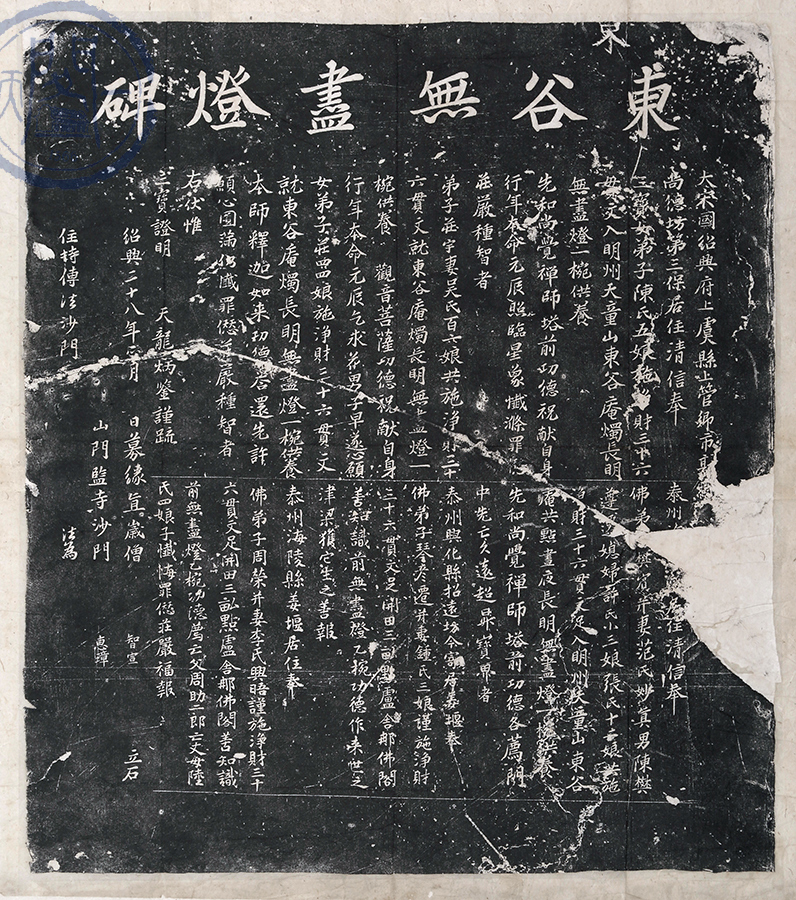 東谷無盡燈碑
大宋國紹興府上虞縣上管鄉市
尚德坊第三保居住清信奉
三寶女弟子陳氏五娘施財三十六
貫文入明州天童山東谷庵燭長明
無盡燈一椀供養
先和尚覺禪師塔前功德祝獻自身
行年本命元辰照臨星象懺滌罪
莊嚴種智者
弟子莊宇妻吳氏百六娘共施淨財三十
六貫文就東谷庵燭長明無盡燈一
椀供養 觀音菩薩功德祝獻自身
行年本命元辰乞求花男子早遂心願
女弟子莊四娘施淨財三十六貫文
就東谷庵燭長明無盡燈一椀供養
本師釋迦如來功德者還先許
願心圓滿仍懺罪愆莊嚴種智者
右伏惟
三寶證明 天龍炳鑒謹疏
紹興二十八年 月 日募緣真歲僧
住持傳法沙門 法為
泰州 住清信奉
佛弟 樊 并妻范氏妙真男陳樊
媳婦許氏小三娘張氏十二娘共施
財三十六貫文足入明州天童山東谷
庵共點晝夜長明無盡燈一椀供養
先和尚覺禪師塔前功德各薦門
中先亡久遠超昇寶界者
泰州興化縣招遠坊今寄居姜堰奉
佛弟子琴彥遷并妻鍾氏三娘謹施淨財
三十六貫文足開田三畝點盧舍那佛閣
善知識前無盡燈乙椀功德作來世之
津梁獲它生之善報
泰州海陵縣姜堰居住奉
佛弟子周榮并妻李氏興晤謹施淨財三十
六貫文足開田三畝點盧舍那佛閣善知識
前無盡燈乙椀功德薦亡父周助二郎亡母陸
氏四娘子懺悔罪愆莊嚴福報
智宣
山門監寺沙門 惠璋 立石